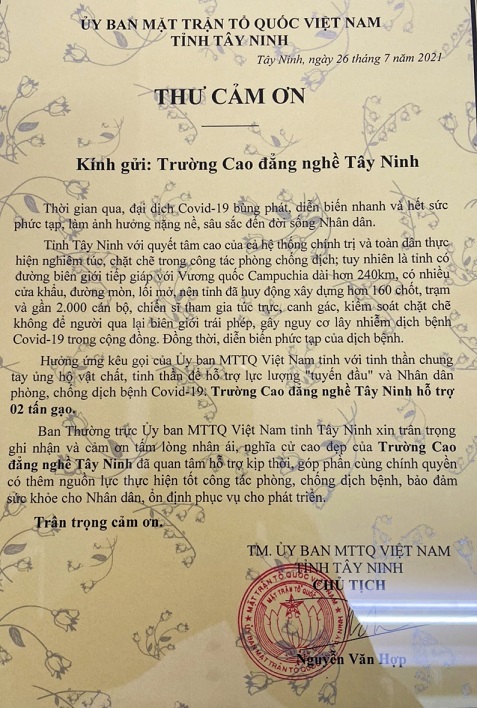 ỦY BAN MẶT TRẬN TỔ QUỐC VIỆT NAM
TỈNH TÂY NINH
Tây Ninh, ngày 26 tháng 7 năm 2021
THƯ CẢM ƠN
Kính gửi: Trường Cao đẳng nghề Tây Ninh
Thời gian qua, đại dịch Covid-19 bùng phát, diễn biến nhanh và hết sức
phức tạp, làm ảnh hưởng nặng nề, sâu sắc đến đời sống Nhân dân.
Tỉnh Tây Ninh với quyết tâm cao của cả hệ thống chính trị và toàn dân thực
hiện nghiêm túc, chặt chẽ trong công tác phòng chống dịch; tuy nhiên là tỉnh có
đường biên giới tiếp giáp với Vương quốc Campuchia dài hơn 240km, có nhiều
cửa khẩu, đường mòn, lối mở, nên tỉnh đã huy động xây dựng hơn 160 chốt, trạm
và gần 2.000 cán bộ, chiến sĩ tham gia túc trực, canh gác, kiểm soát chặt chẽ
không để người qua lại biên giới trái phép, gây nguy cơ lây nhiễm dịch bệnh
Covid-19 trong cộng đồng. Đồng thời, diễn biến phức tạp của dịch bệnh.
Hưởng ứng kêu gọi của Ủy ban MTTQ Việt Nam tỉnh với tinh thần chung
tay ủng hộ vật chất, tinh thần để hỗ trợ lực lượng "tuyến đầu" và Nhân dân
phòng, chống dịch bệnh Covid-19. Trường Cao đẳng nghề Tây Ninh hỗ trợ
02 tấn gạo.
Ban Thường trực Ủy ban MTTQ Việt Nam tỉnh Tây Ninh xin trân trọng
ghi nhận và cảm ơn tấm lòng nhân ái, nghĩa cử cao đẹp của Trường Cao
đẳng nghề Tây Ninh đã quan tâm hỗ trợ kịp thời, góp phần cùng chính quyền
có thêm nguồn lực thực hiện tốt công tác phòng, chống dịch bệnh, bảo đảm
sức khỏe cho Nhân dân, ổn định phục vụ cho phát triển.
Trân trọng cảm ơn.
TM. ỦY BAN MTTQ VIỆT NAM
TỈNH TÂY NINH
CHỦ TỊCH
MẶT TRẬN TỔ QUỐC
Nguyễn Văn Hợp